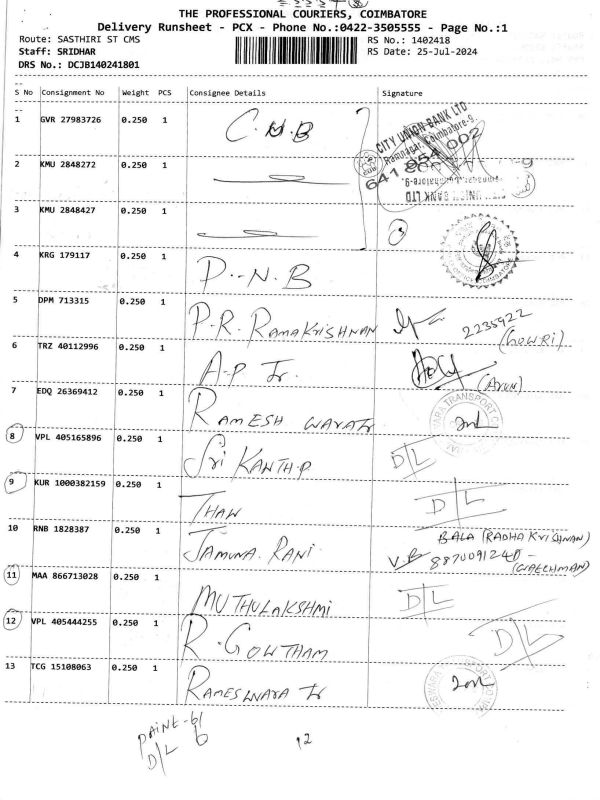 THE PROFESSIONAL COURIERS, COIMBATORE
Delivery Runsheet - PCX - Phone No.:0422-3505555 - Page No.:1
Route: SASTHIRI ST CMS RS No.: 1402418
Staff: SRIDHAR RS Date: 25-Jul-2024
DRS No.: DCJB140241801
S No Consignment No Weight PCS Consignee Details Signature
1 GVR 27983726 0.250 1 C.U.B
CITY UNION BANK LTD
Ramnagar, Coimbatore-9.
641 954 002
2 KMU 2848272 0.250 1
3 KMU 2848427 0.250 1
4 KRG 179117 0.250 1 P.N.B
5 DPM 713315 0.250 1 P.R. RAMAKRISHNAN 2235922
(GOWRI)
6 TRZ 40112996 0.250 1 A-P Tr. (Arun)
7 EDQ 26369412 0.250 1 RAMESH WARA Tr
8 VPL 405165896 0.250 1 Sri KANTH.P D/L
9 KUR 1000382159 0.250 1 THAW D/L
10 RNB 1828387 0.250 1 JAMUNA. RANI BALA (RADHA KRISHNAN)
V.B 8870091240 -
(WATCHMAN)
11 MAA 866713028 0.250 1 MUTHULAKSHMI D/L
12 VPL 405444255 0.250 1 R. GOWTHAM D/L
13 TCG 15108063 0.250 1 RAMESWARA Tr
D/L
12